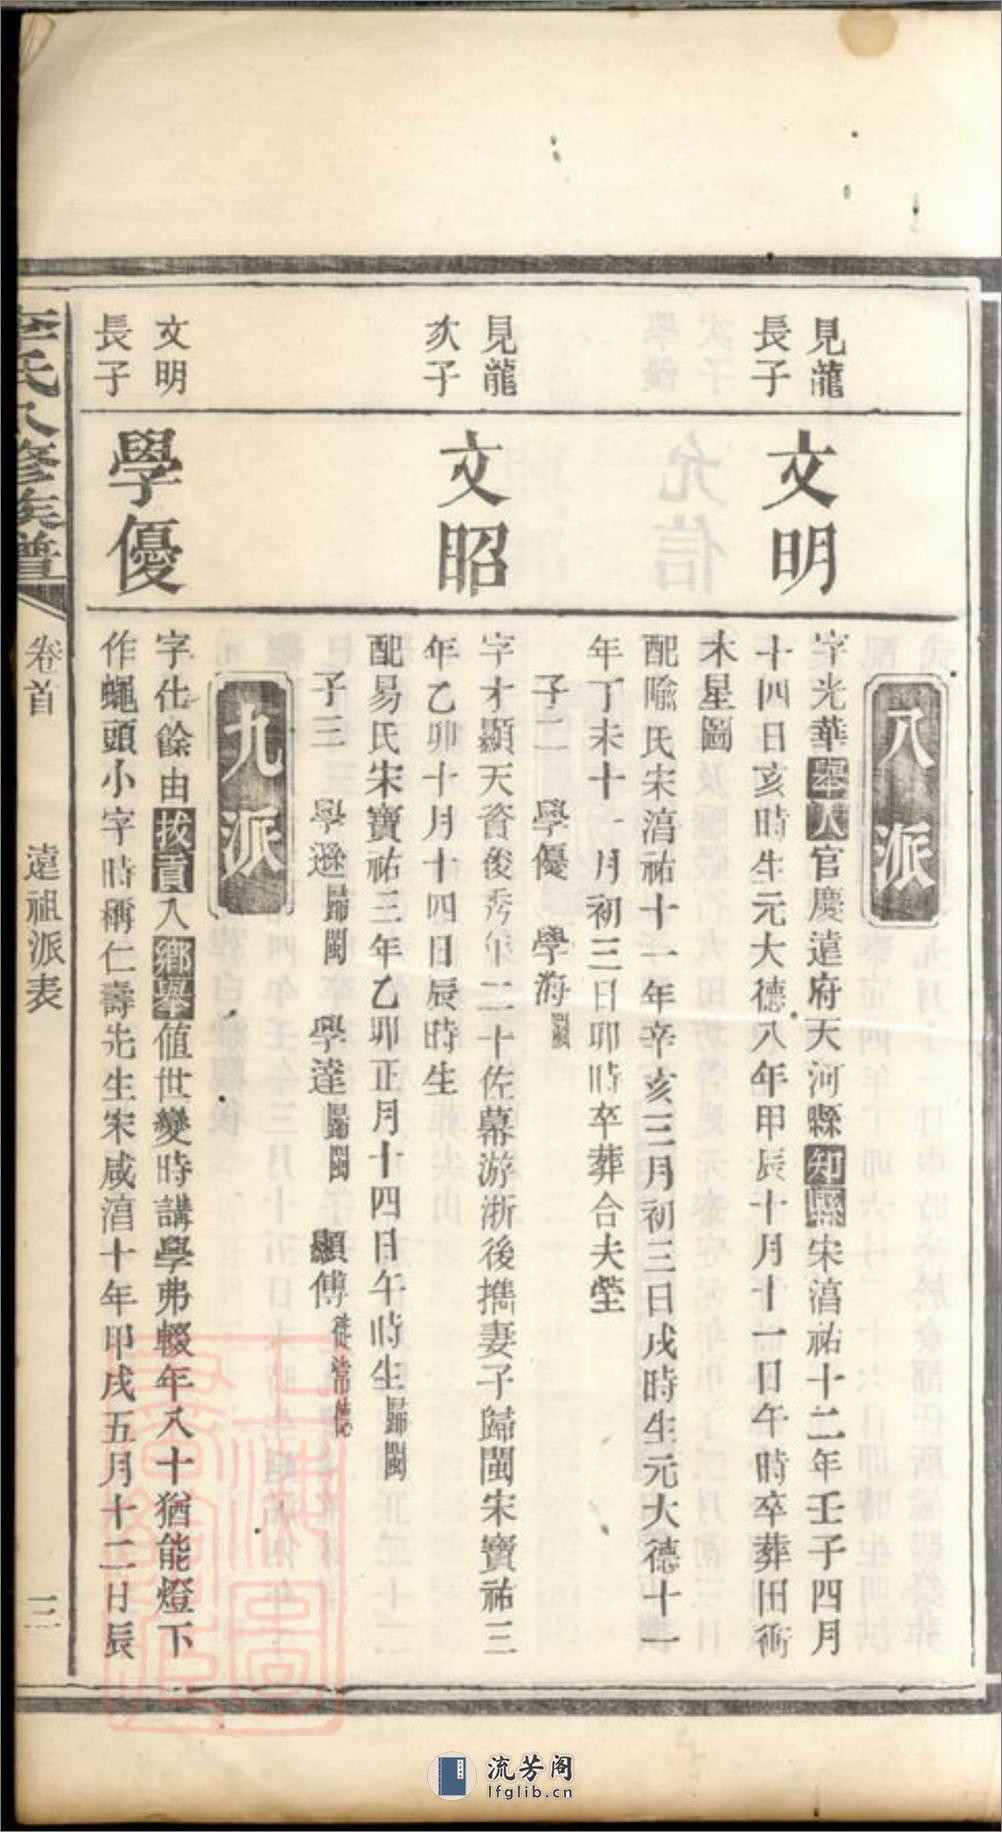 八派
見龍
長子
文明
字光華舉人官慶遠府天河縣知縣宋淳祐十二年壬子四月
十四日亥時生元大德八年甲辰十月十一日午時卒葬田衕
木星圖
配喻氏宋淳祐十一年辛亥三月初三日戌時生元大德十一
年丁未十一月初三日卯時卒葬合夫塋
子二 學優 學海
見龍
次子
文昭
字才顯天資俊秀年二十佐幕游浙後攜妻子歸閩宋寶祐三
年乙卯十月十四日辰時生
配易氏宋寶祐三年乙卯正月十四日午時生歸閩
子三 學遜歸閩 學達歸閩 顯傅徙常德
九派
文明
長子
學優
字仕餘由拔貢入鄉舉值世變時講學弗輟年八十猶能燈下
作蠅頭小字時稱仁壽先生宋咸淳十年甲戌五月十二日辰
氏八修族譜
卷首
遠祖派表
三
流芳阁
lfglib.cn